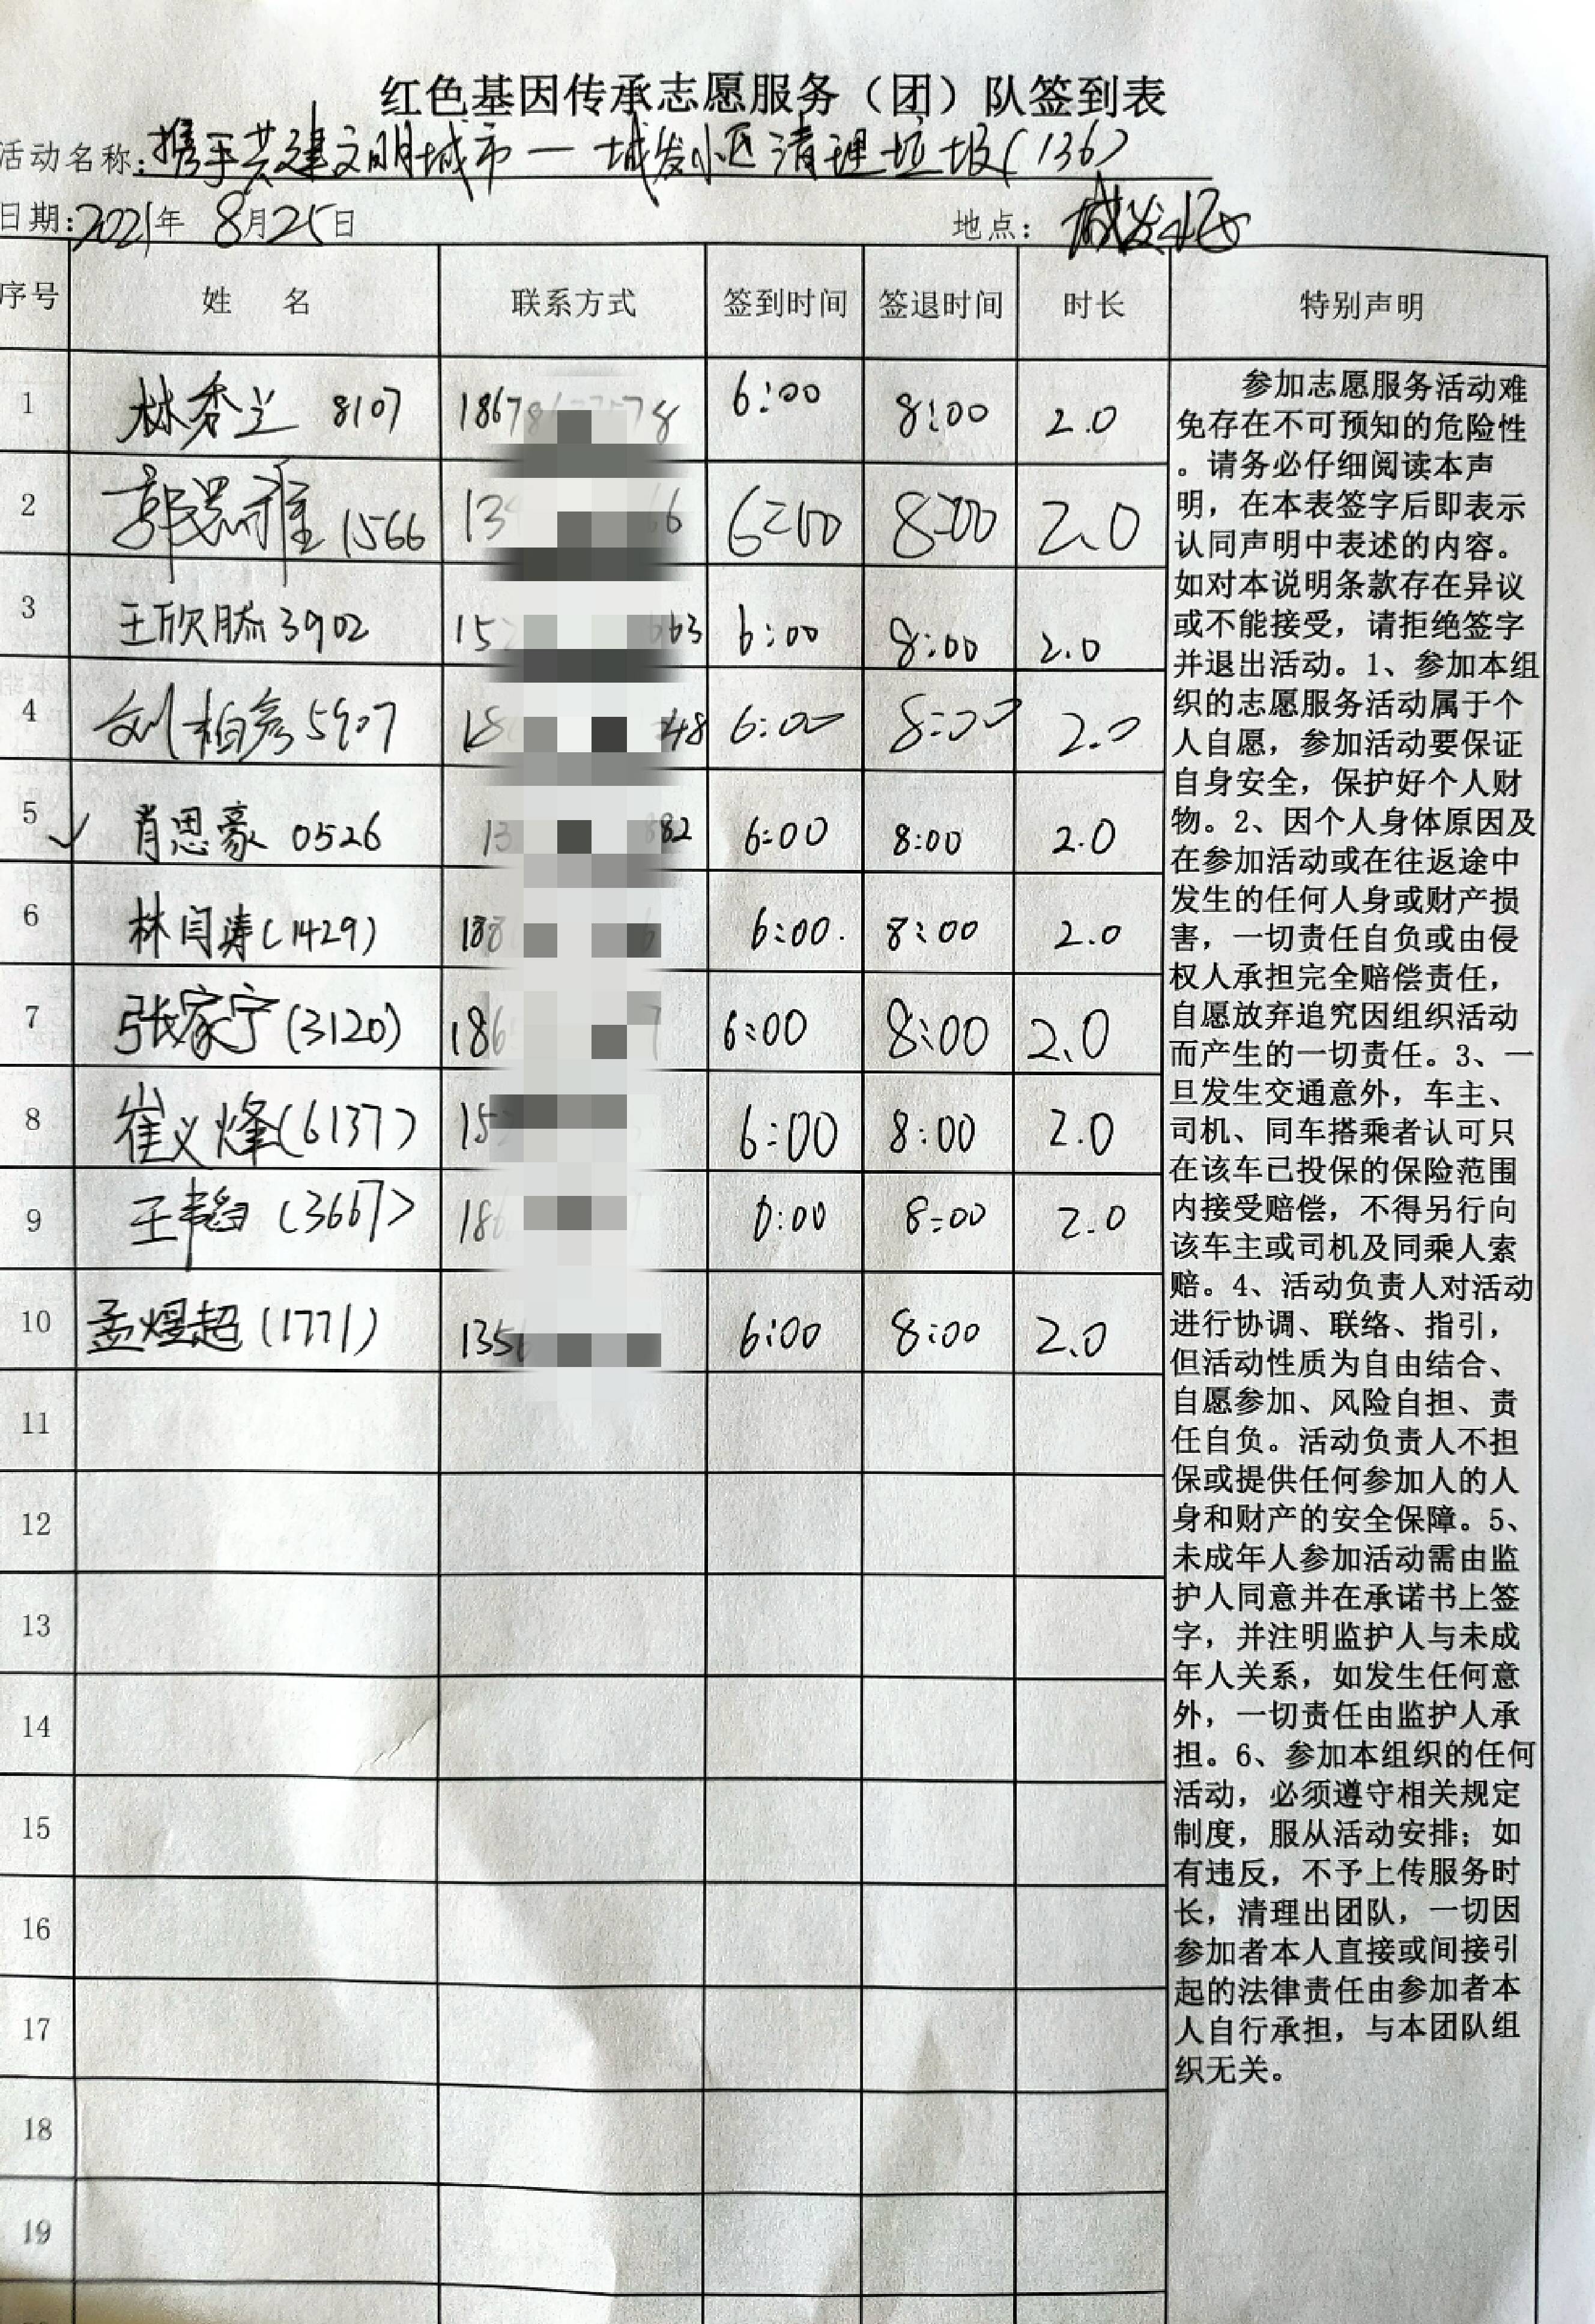 红色基因传承志愿服务（团）队签到表
活动名称：携手共建文明城市—城发小区清理垃圾（136）
日期：2021年 8月25日 地点：城发小区
序号 姓 名 联系方式 签到时间 签退时间 时长 特别声明
1 林秀兰 8107 1867 8 6:00 8:00 2.0
2 郭思雅 1566 13 66 6:00 8:00 2.0
3 王欣 3902 15 663 6:00 8:00 2.0
4 刘柏彦 5907 18 48 6:00 8:00 2.0
5 肖思豪 0526 13 882 6:00 8:00 2.0
6 林闫涛(1429) 188 6 6:00 8:00 2.0
7 张家宁(3120) 186 7 6:00 8:00 2.0
8 崔义烽(6137) 15 6:00 8:00 2.0
9 王韬(3667) 18 6:00 8:00 2.0
10 孟煜超(1771) 1356 6:00 8:00 2.0
11
12
13
14
15
16
17
18
19
参加志愿服务活动难
免存在不可预知的危险性
。请务必仔细阅读本声
明，在本表签字后即表示
认同声明中表述的内容。
如对本说明条款存在异议
或不能接受，请拒绝签字
并退出活动。1、参加本组
织的志愿服务活动属于个
人自愿，参加活动要保证
自身安全，保护好个人财
物。2、因个人身体原因及
在参加活动或在往返途中
发生的任何人身或财产损
害，一切责任自负或由侵
权人承担完全赔偿责任，
自愿放弃追究因组织活动
而产生的一切责任。3、一
旦发生交通意外，车主、
司机、同车搭乘者认可只
在该车已投保的保险范围
内接受赔偿，不得另行向
该车主或司机及同乘人索
赔。4、活动负责人对活动
进行协调、联络、指引，
但活动性质为自由结合、
自愿参加、风险自担、责
任自负。活动负责人不担
保或提供任何参加人的人
身和财产的安全保障。5、
未成年人参加活动需由监
护人同意并在承诺书上签
字，并注明监护人与未成
年人关系，如发生任何意
外，一切责任由监护人承
担。6、参加本组织的任何
活动，必须遵守相关规定
制度，服从活动安排；如
有违反，不予上传服务时
长，清理出团队，一切因
参加者本人直接或间接引
起的法律责任由参加者本
人自行承担，与本团队组
织无关。